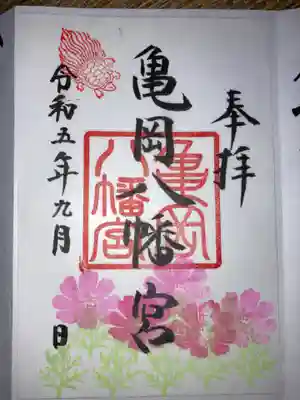 奉拝
亀岡八幡宮
亀岡
八幡宮
令和五年九月 日